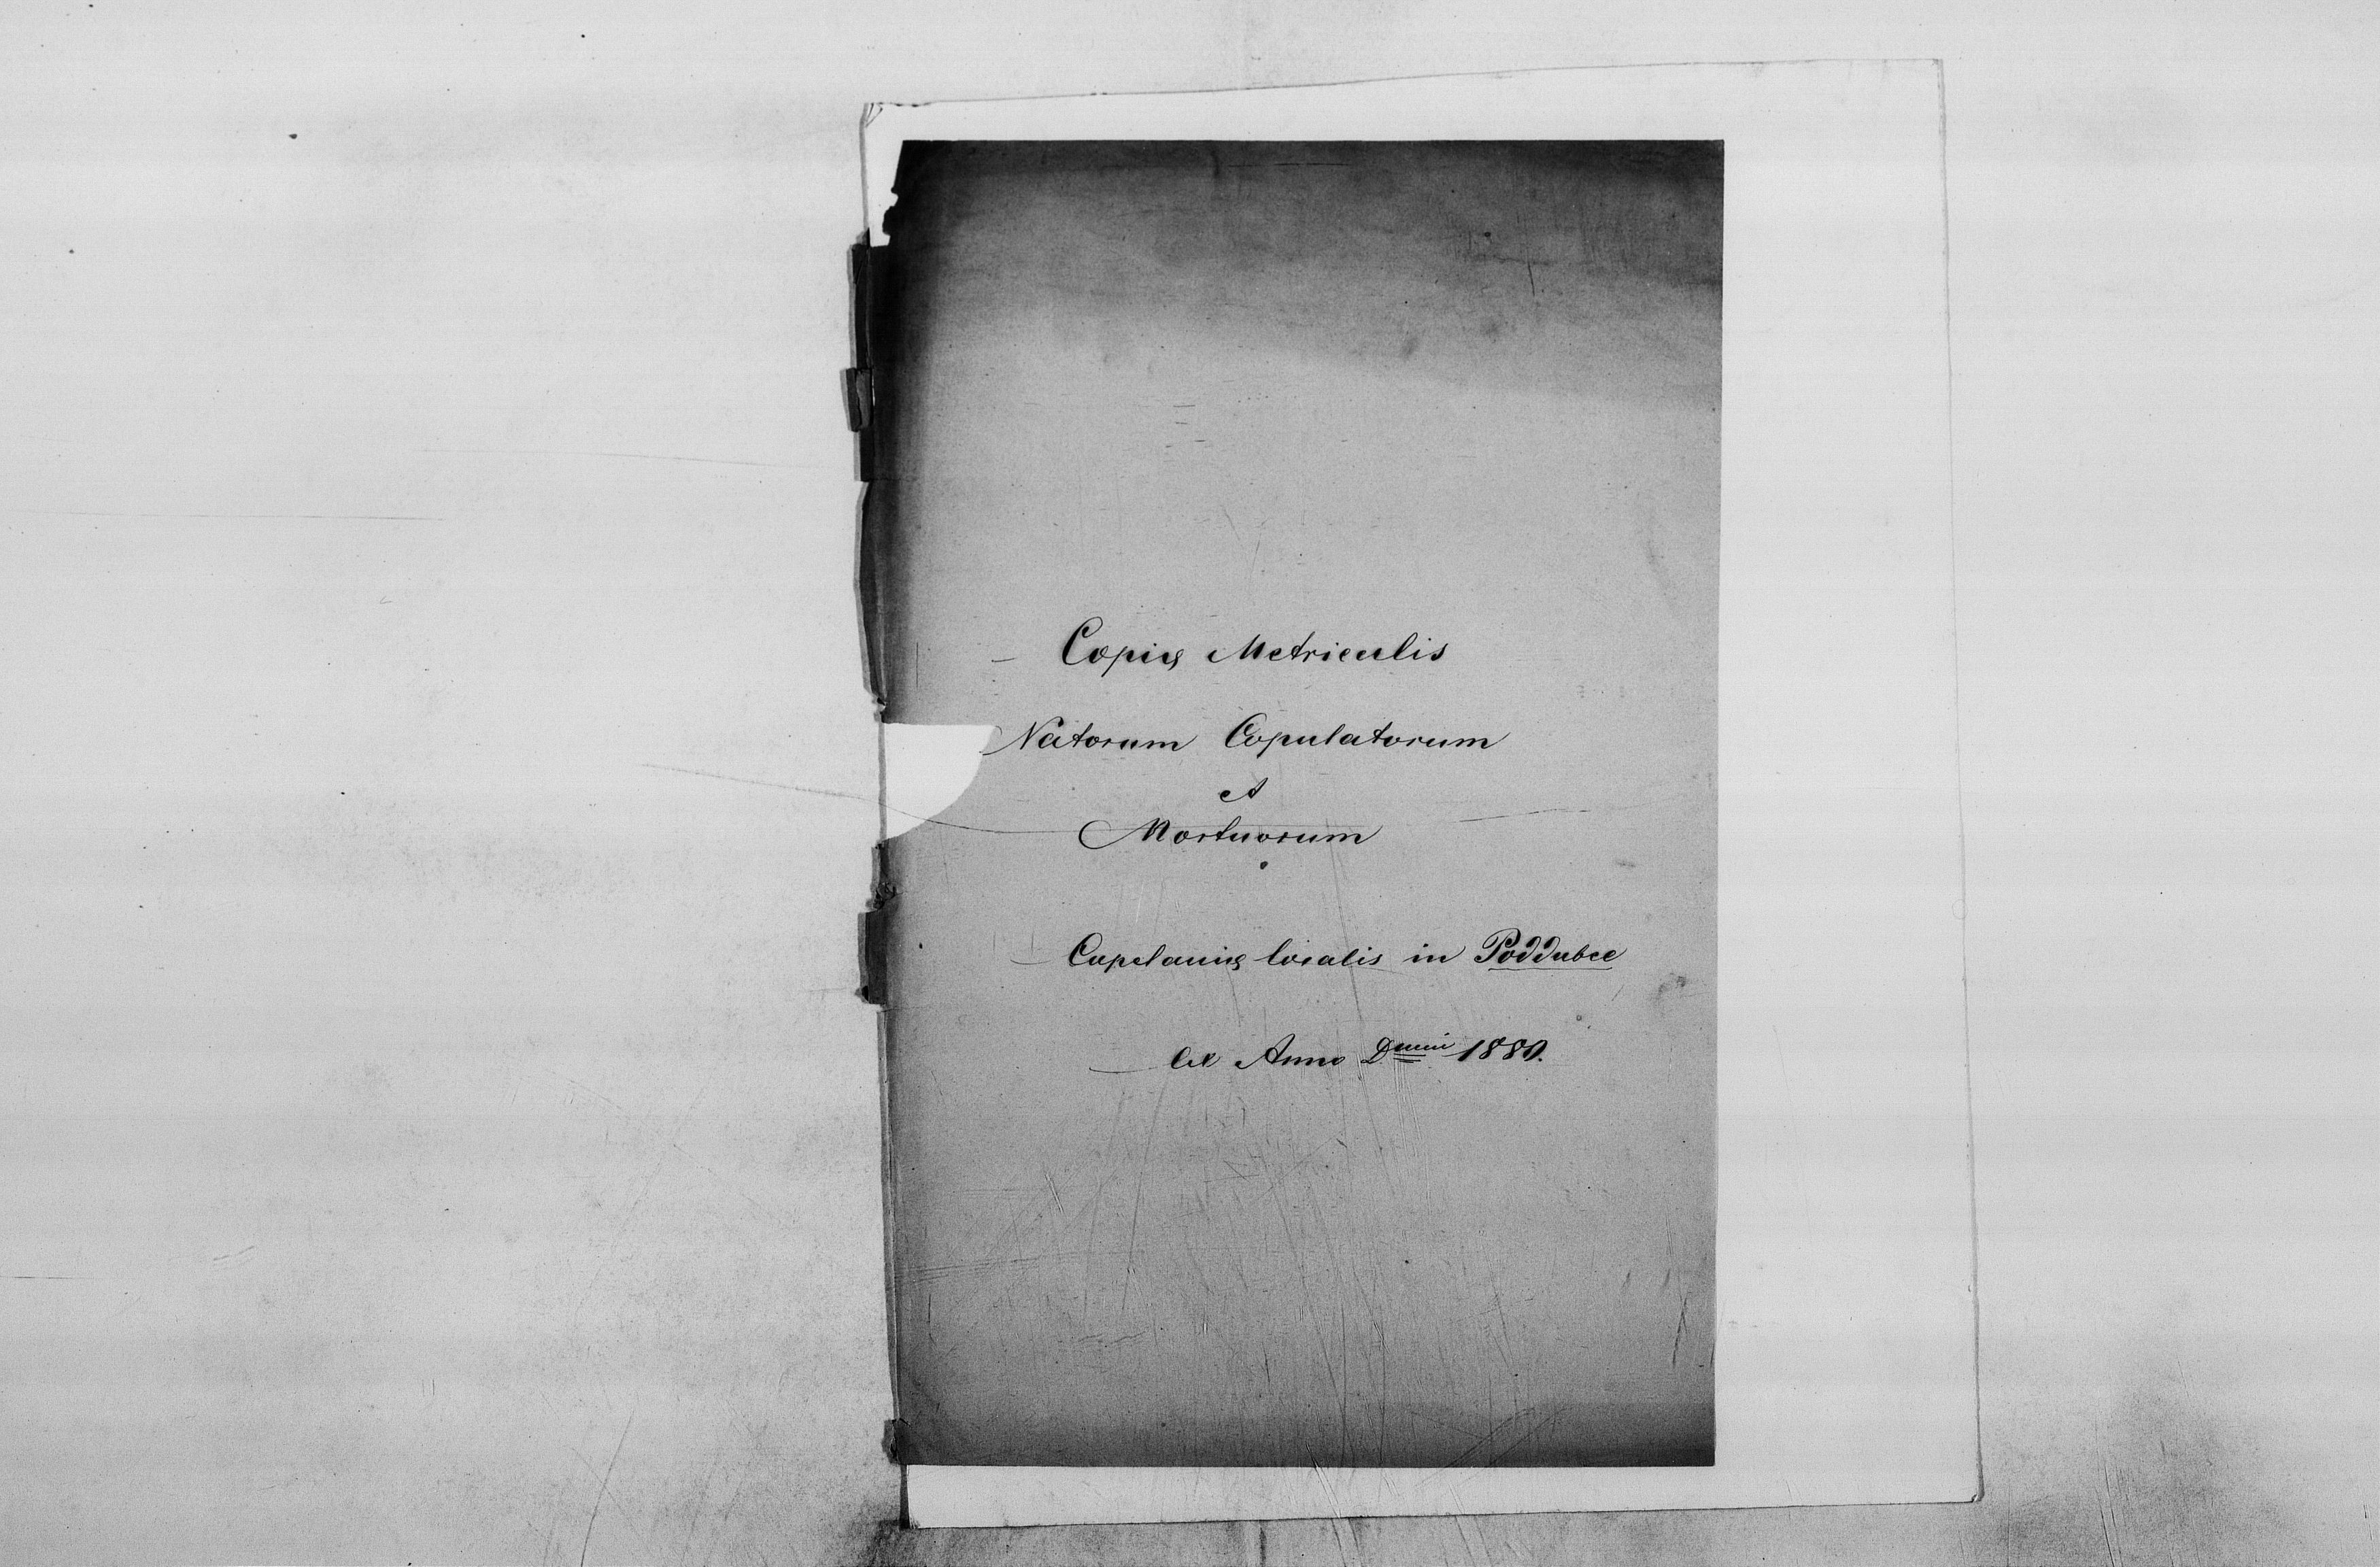 Copiæ Metriculis
Natorum Copulatorum
et
Mortuorum
Capelaniæ localis in Poddubce
ex Anno Dmini 1880.